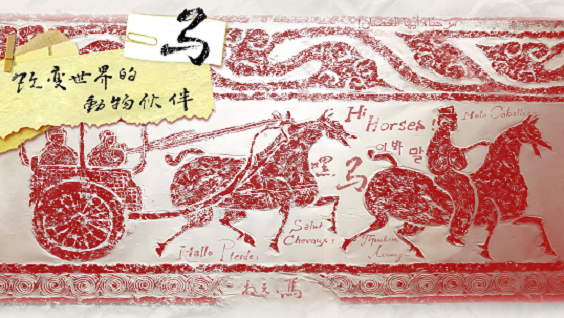 马
改变世界的
動物伙伴
Hi
Horses!
Hola Caballos
이봐 말
嘿
马
Salut
Chevaux!
Hallo Pferde,